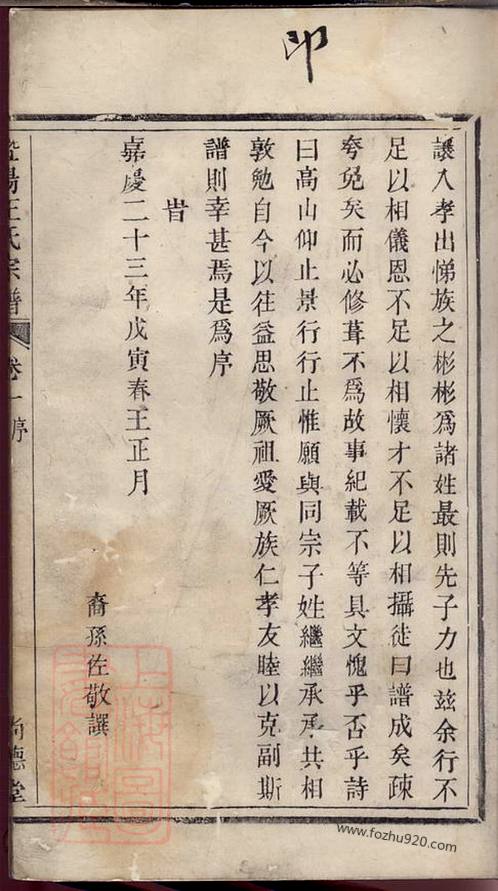 卬
讓入孝出悌族之彬彬爲諸姓最則先子力也兹余行不
足以相儀恩不足以相懷才不足以相攝徒曰譜成矣疎
夸免矣而必修葺不爲故事紀載不等具文愧乎否乎詩
曰高山仰止景行行止惟願與同宗子姓繼繼承承共相
敦勉自今以往益思敬厥祖愛厥族仁孝友睦以克副斯
譜則幸甚焉是爲序
旹
嘉慶二十三年戊寅春王正月
裔孫佐敬譔
暨陽王氏宗譜 卷一 序 尚德堂
上海圖
www.fozhu920.com